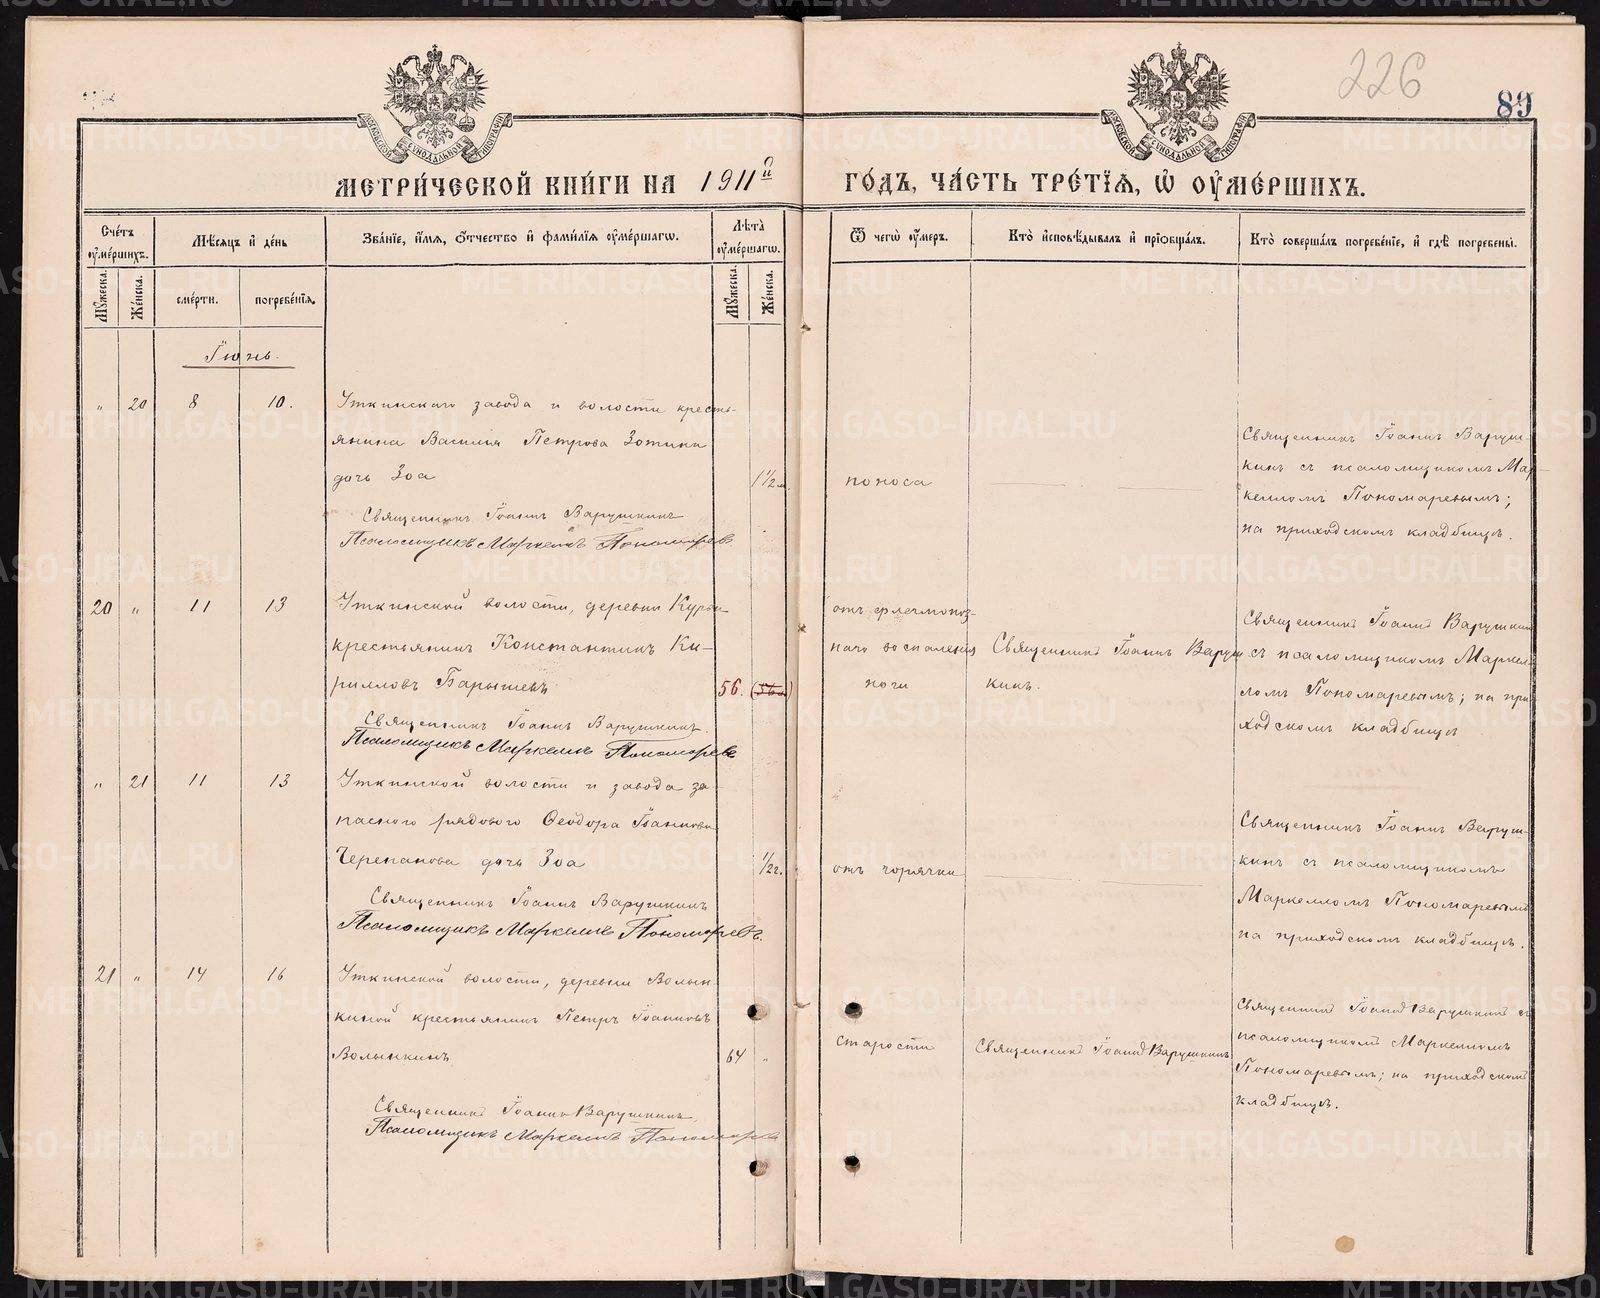 226
89
МОСКОВСКОЙ СѴНОДАЛЬНОЙ ТИПОГРАФІИ
МОСКОВСКОЙ СѴНОДАЛЬНОЙ ТИПОГРАФІИ
МЕТРИ́ЧЕСКОЙ КНИ́ГИ НА 1911й ГО́ДЪ, ЧА́СТЬ ТРЕ́ТІѦ, Ѡ҆ ОУ҆МЕ́РШИХЪ.
Сче́тъ оу҆ме́ршихъ.
Мѣ́сяцъ и҆ де́нь
Зва́ніе, и҆́мя, ѻ҆́тчество и҆ фами́лія оу҆ме́ршагѡ.
Лѣ́та оу҆ме́ршагѡ.
Ѿ чегѡ̀ оу҆́меръ.
Кто̀ и҆сповѣ́дывалъ и҆ пріѡбща́лъ.
Кто̀ соверша́лъ погребе́ніе, и҆ гдѣ̀ погребены̀.
Му́жеска. Же́нска. сме́рти. погребе́нія. Му́жеска. Же́нска.
Іюнь.
" 20 8 10. Уткинскаго завода и волости кресть-
янина Василія Петрова Зотина
дочь Зоа 1 1/2 м
Священникъ Іоаннъ Варушкинъ
Псаломщикъ Маркеллъ Пономаревъ
поноса
Священникъ Іоаннъ Варуш-
кинъ съ псаломщикомъ Мар-
келломъ Пономаревымъ;
на приходскомъ кладбищѣ.
20 " 11 13 Уткинской волости, деревни Курьи
крестьянинъ Константинъ Ки-
рилловъ Барышевъ 56.
Священникъ Іоаннъ Варушкинъ.
Псаломщикъ Маркеллъ Пономаревъ
отъ флегмоноз-
наго воспаленія
ноги
Священникъ Іоаннъ Варуш-
кинъ.
Священникъ Іоаннъ Варушкинъ
съ псаломщикомъ Маркел-
ломъ Пономаревымъ; на при-
ходскомъ кладбищѣ
" 21 11 13 Уткинской волости и завода за-
паснаго рядового Ѳеодора Іоаннова
Черепанова дочь Зоа 1/2 г.
Священникъ Іоаннъ Варушкинъ
Псаломщикъ Маркеллъ Пономаревъ.
отъ горячки
Священникъ Іоаннъ Варуш-
кинъ съ псаломщикомъ
Маркелломъ Пономаревымъ
на приходскомъ кладбищѣ.
21 " 14 16 Уткинской волости, деревни Волын-
киной крестьянинъ Петръ Іоанновъ
Волынкинъ 64 "
Священникъ Іоаннъ Варушкинъ
Псаломщикъ Маркеллъ Пономаревъ
старости
Священникъ Іоаннъ Варушкинъ
Священникъ Іоаннъ Варушкинъ съ
псаломщикомъ Маркелломъ
Пономаревымъ; на приходскомъ
кладбищѣ.
METRIKI.GASO-URAL.RU